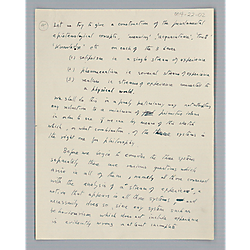 Let us try to give a construction of the fundamental
epistemological concepts, 'meaning', 'truth'
'knowledge' etc on each of the 3 bases
(1) solipsism in a single stream of experience
(2) phenomenalism in several streams of experience
(3) realism in streams of experience immersed in
a physical world.
we shall do this in a purely preliminary way
any notion to a minimum of primitive ideas
in order to see if we can by means of the
which, or what combination, of the three systems is
the right one for philosophy.
Before we begin to consider these systems
separately there are various questions which
arise in all of them; namely all those connected
with the analysis of a 'stream of experience', a
notion that appears in all three systems and
necessarily does so, since any system such as
behaviourism which does not include experience
is evidently wrong